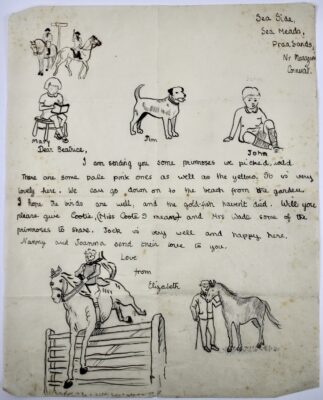 Sea Side,
Sea Meads,
Praa Sands,
Nr Marazion
Cornwall.
Mary
Pim
John
Dear Beatrice,
I am sending you some primroses we picked, wild
There are some pale pink ones as well as the yellow, It is very
lovely here. We can go down on to the beach from the garden.
I hope the birds are well, and the gold-fish haven't died. Will you
please give Cootie, (Miss Coote I mean) and Mrs Wade some of the
primroses to share. Jock is very well and happy here.
Nanny and Joanna send their love to you.
Love
from
Elizabeth